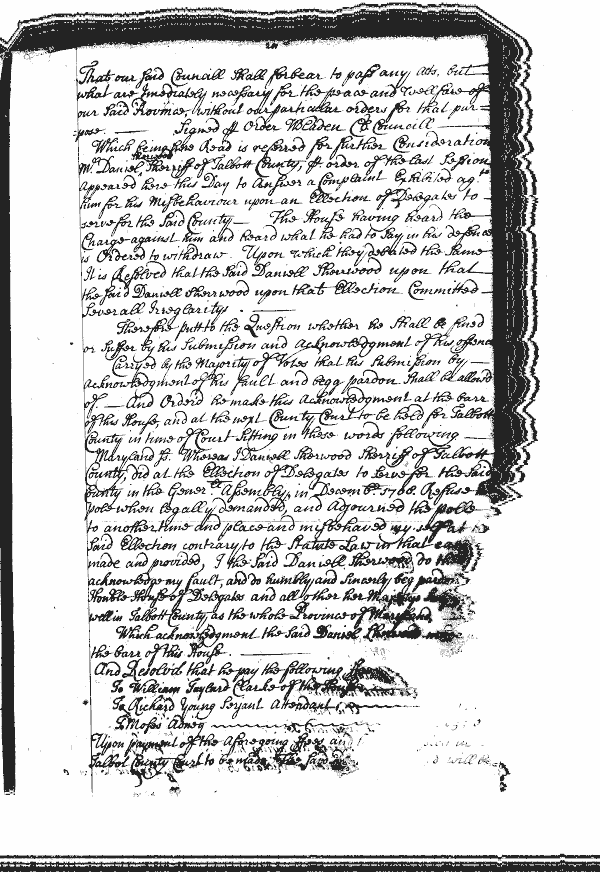 That our said Councill shall forbear to pass any Acts, but
what are Imediately necessary for the peace and Wellfare of
our Said Province, without our particular orders for that pur=
=pose. Signed Order Councill
Which being Read is referred for further Consideration
Mr. Daniel Sherwood Sherriff of Talbott County, order of the last Session
Appeared here this Day to Answer a Complaint Exhibited agt.
him for his Misbehaviour upon an Ellection of Delegates to
serve for the Said County The House having heard the
Charge against him and heard what he had to Say in his defence
is Ordered to withdraw. Upon which they debated the Same
It is Resolved that the Said Daniell Sherwood upon that
the said Daniell Sherrwood upon that Ellection Committed
Severall Irregularitys
Therefore putt to the Question whether he Shall be fined
or Suffer by his Submission and Acknowledgment of his offence
Carryed by the Majority of Votes that his Submission by
Acknowledgment of his fault and begg pardon Shall be allowd
of And Orderd he make this Acknowledgment at the barr
of this House, and at the next County Court to be held for Talbott
County in time of Court Sitting in these words following
Maryland Whereas I Daniell Sherwood Sherriff of Talbott
County, did at the Ellection of Delegates to Serve for the Said
County in the Assembly, in Refuse
pole when legally demanded, and Adjourned the polle
to another time and place and misbehaved my self at
Said Ellection contrary to the Statute Law in that case
made and provided, I the Said Daniell Sherwood do
acknowledge my fault, and do humbly and Sincerly beg pardon
Honble House of Delegates and all other her Majestys
well in Talbott County, as the whole Province of Maryland.
Which acknowledgment the said Daniel Sherwood
the barr of this House
And Resolvd that he pay the following ffees
To William Taylard Clarke of the House
To Richard Young Serjant Attendant
To Moses Adney
Upon payment of the Aforegoing ffees
Talbot County Court to be made the Said
will be